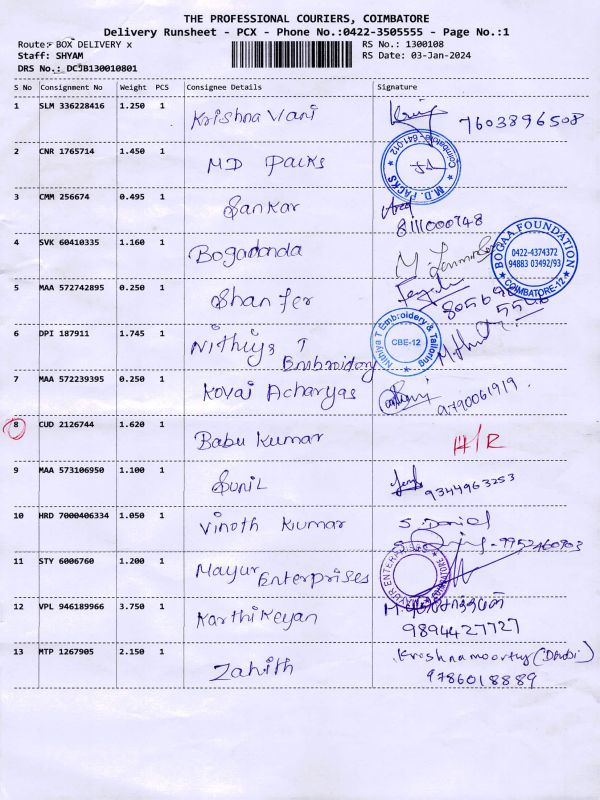 THE PROFESSIONAL COURIERS, COIMBATORE
Delivery Runsheet - PCX - Phone No.:0422-3505555 - Page No.:1
Route: BOX DELIVERY x
RS No.: 1300108
Staff: SHYAM
RS Date: 03-Jan-2024
DRS No.: DCJB130010801
S No Consignment No Weight PCS Consignee Details Signature
1 SLM 336228416 1.250 1 Krishna Vani 7603896508
2 CNR 1765714 1.450 1 MD Packs
M.D. PACKS Coimbatore - 641 012
3 CMM 256674 0.495 1 Sankar
8111000748
4 SVK 60410335 1.160 1 Bogadonda
BOGAA FOUNDATION
0422-4374372
94883 03492/93
COIMBATORE-12
5 MAA 572742895 0.250 1 Shan fer
6 DPI 187911 1.745 1 Nithiya T
Embroidory
Nithiya T Embroidery & Tailoring
CBE-12
7 MAA 572239395 0.250 1 Kovai Acharyas
9790061919
8 CUD 2126744 1.620 1 Babu Kumar H/R
9 MAA 573106950 1.100 1 Sunil
9344963253
10 HRD 7000406334 1.050 1 Vinoth Kumar S. Daniel
11 STY 6006760 1.200 1 Mayur Enterprises
MAYUR ENTERPRISES
12 VPL 946189966 3.750 1 Karthikeyan
9894427727
13 MTP 1267905 2.150 1 Zahith Krishnamoorthy
9786018889